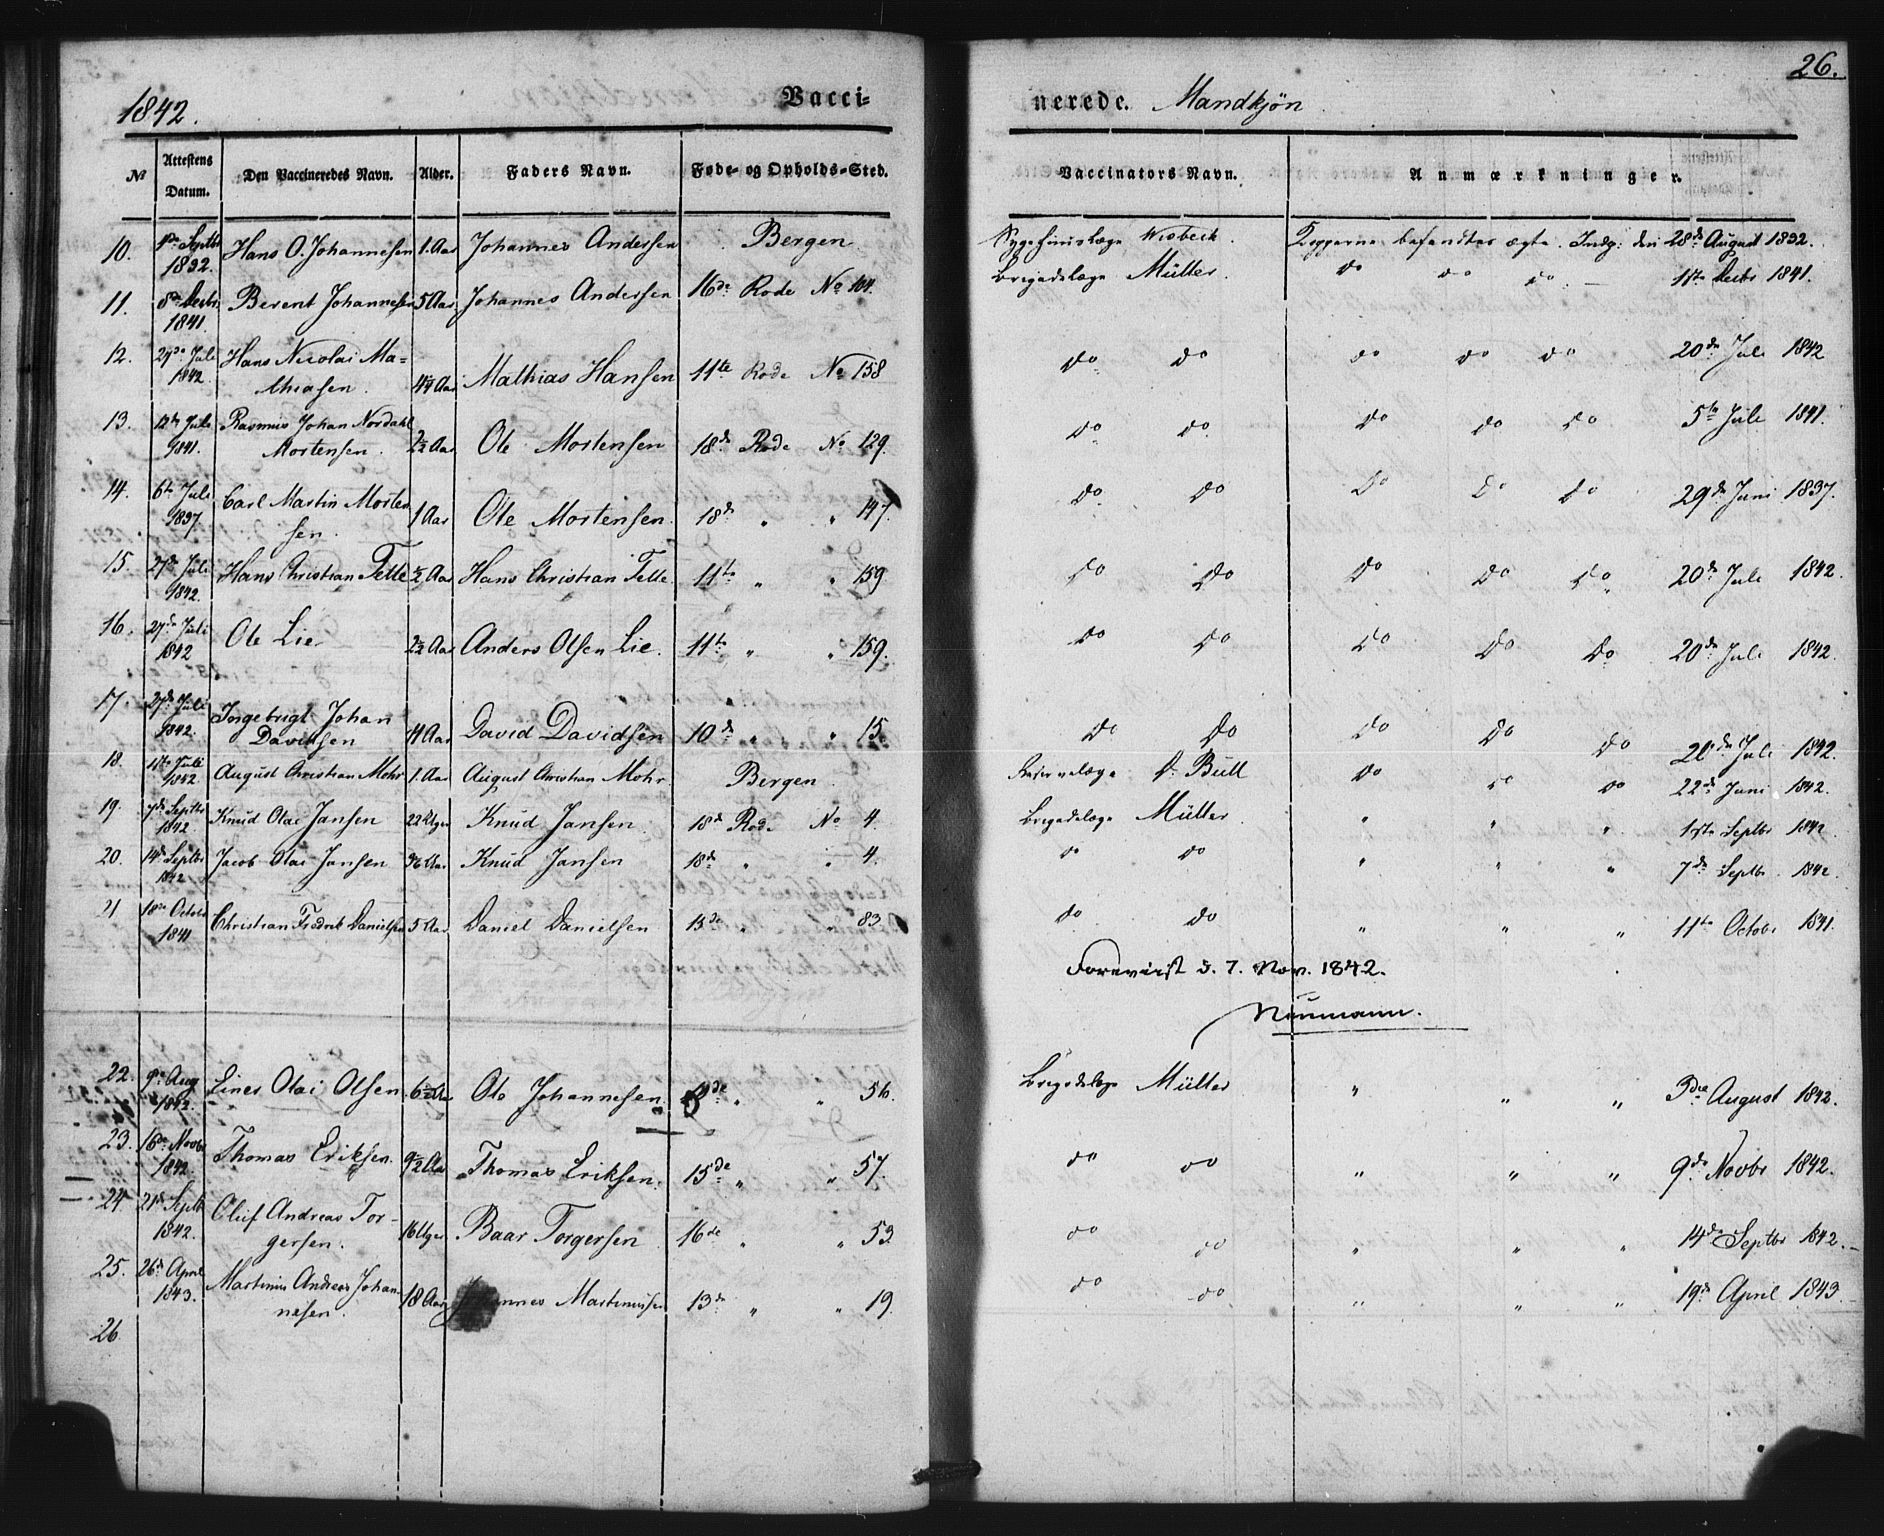 26.
1842.
Vacci-
nerede. Mandkjön
№ Attestens Datum. Den Vaccineredes Navn. Alder. Faders Navn. Føde- og Opholds-Sted. Vaccinators Navn. Anmærkninger.
10. 4de Septbr 1832. Hans O. Johannesen 1. Aar Johannes Andersen Bergen Sygehuuslæge Wisbech. Kopperne befandtes ægte. Indp: den 28de August 1832.
11. 8de Decbr 1841. Berent Johannesen 5 Aar Johannes Andersen 16de Rode No 104. Brigadelæge Müller. Do Do Do 1ste Decbr 1841.
12. 27de Juli 1842. Hans Nicolai Ma=
thiasen. Aar Mathias Hansen 11te Rode No 158 Do Do Do Do Do 20de Juli 1842
13. 12te Juli 1841. Rasmus Johan Nordahl
Mortensen. Aar Ole Mortensen 18de Rode No 129. Do Do Do Do Do 5te Juli 1841.
14. 6te Juli 1837. Carl Martin Morten
sen. 1 Aar Ole Mortensen. 18de " " 147. Do Do Do Do Do 29de Juni 1837.
15. 27de Juli 1842. Hans Christian Telle ½ Aar Hans Christian Telle. 11te " " 159 Do Do Do Do Do 20de Juli 1842.
16. 27de Juli 1842 Ole Lie. 2½ Aar Anders Olsen Lie. 11te " " 159. Do Do Do Do Do 20de Juli 1842.
17. 27de Juli 1842. Ingebrigt Johan
Davidsen Aar David Davidsen 10de " " 15. Do Do Do Do Do 20de Juli 1842.
18. Juli 1842 August Christian Mohr 1. Aar August Christian Mohr Bergen. Dr. Bull Do Do Do 22de Juni 1842.
19. 7de Septbr 1842. Knud Olai Jansen 22 Uger Knud Jansen. 18de Rode No 4. Brigadelæge Müller " " " 1ste Septbr 1842.
20. 14de Septbr 1842 Jacob Olai Jansen Knud Jansen 18de " " 4. Do Do " " " 7de Septbr 1842.
21 18de Octobr 1841 Christian Fredrik Danielsen 5 Aar Daniel Danielsen 15de " " 83 Do Do " " " 11te Octobr 1841.
Foreviist d. 7. Nov. 1842.
Neumann.
22. 9de Aug 1842. Olai Olsen 6½ Aar Ole Johannesen. " " 56. Brigadelæge Müller " " " 3die August 1842.
23. 16de Novbr 1842. Thomas Eriksen. 9½ Aar Thomas Eriksen. 15de " " 57. Do Do " " " 9de Novbr 1842.
24 21de Septbr 1842. Oluf Andreas Tor-
gersen. 16 Uger Baar Torgersen 16de " " 53. Do Do " " " 14de Septbr 1842.
25. 26de April 1843. Martinus Andreas Johan-
nesen. 18 Aar Johannes Martinussen 13de " " 19. Do Do " " " 19de April 1843
26